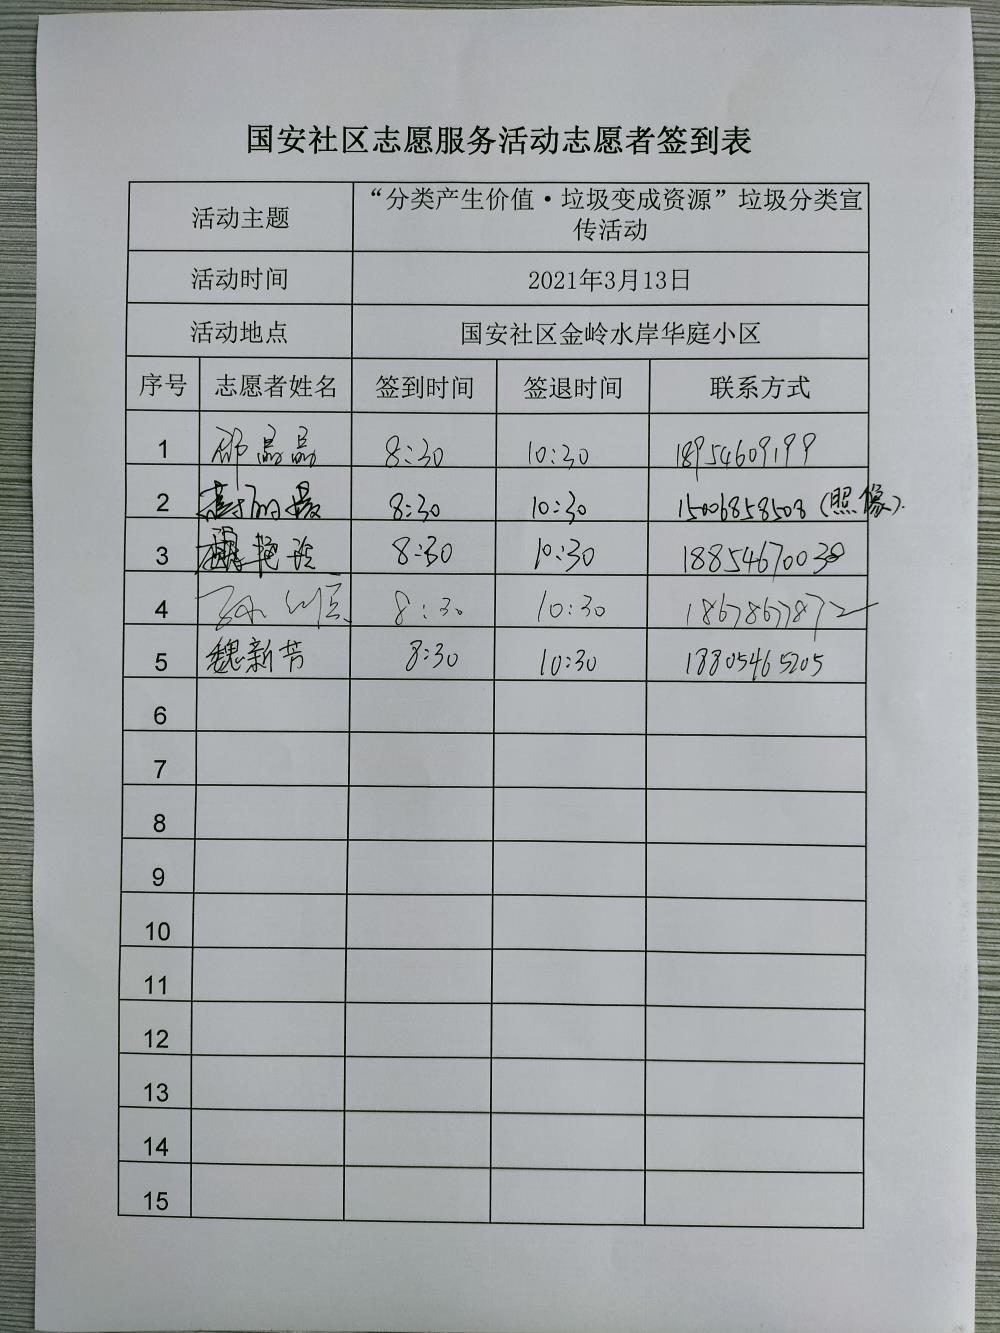 国安社区志愿服务活动志愿者签到表
活动主题 “分类产生价值·垃圾变成资源”垃圾分类宣
传活动
活动时间 2021年3月13日
活动地点 国安社区金岭水岸华庭小区
序号 志愿者姓名 签到时间 签退时间 联系方式
1 晶晶 8:30 10:30 18954609199
2 8:30 10:30 15006858508 (照像).
3 8:30 10:30
4 8:30 10:30 18678677872
5 魏新芳 8:30 10:30 18805465205
6
7
8
9
10
11
12
13
14
15